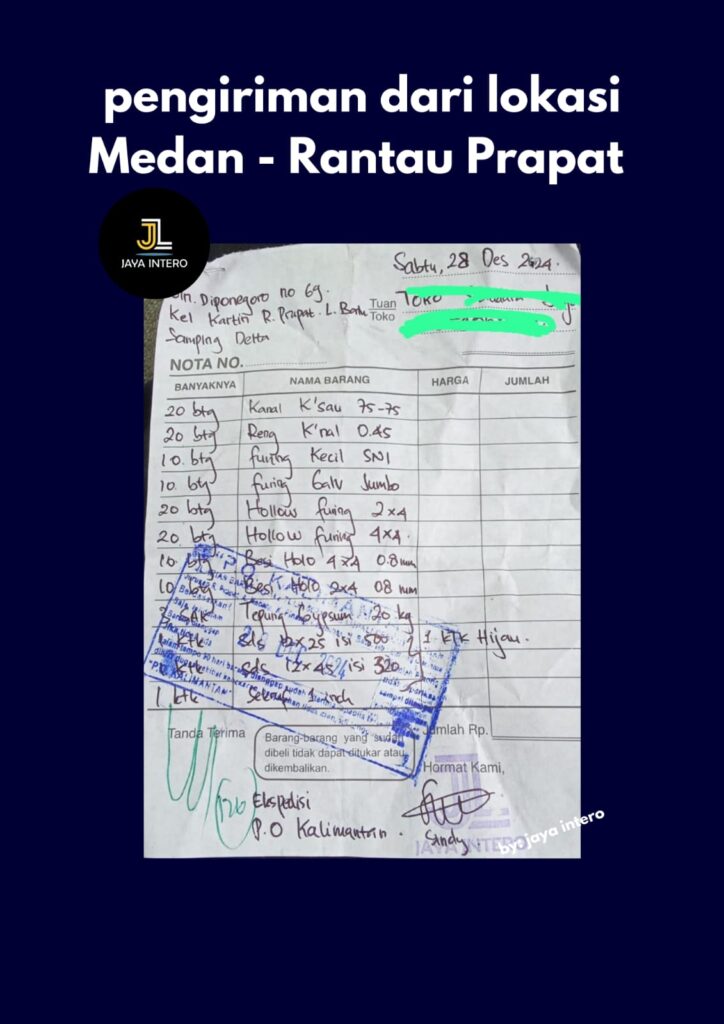 pengiriman dari lokasi
Medan - Rantau Prapat
JL
JAYA INTERO
Sabtu, 28 Des 2024.
Jln. Diponegoro no 69.
Kel Kartin R. Prapat. L. Batu
Samping Delta
Tuan
Toko
Toko
NOTA NO.
BANYAKNYA NAMA BARANG HARGA JUMLAH
20 btg Kanal K'sau 75-75
20 btg Reng K'nal 0.45
10. btg furing Kecil SNI
10 btg furing Galv Jumbo
20 btg Hollow furing 2x4
20. btg Hollow furing 4x4.
10. btg Besi Holo 4x4 0.8 mm
10. btg Besi Holo 2x4 08 mm
SAK Tepung Gypsum 20 kg
1 ktk sds 12x25 isi 500 1 ktk Hijau.
ktk sds 12x45 isi 320
1 ktk Sekrup 1 inch
P.O KALIMANTAN
28 DEC 2024
"P.O KALIMANTAN"
Tanda Terima
Barang-barang yang sudah
dibeli tidak dapat ditukar atau
dikembalikan.
Jumlah Rp.
Hormat Kami,
Ekspedisi
P.O Kalimantan.
Sindy
JAYA INTERO
by. jaya intero